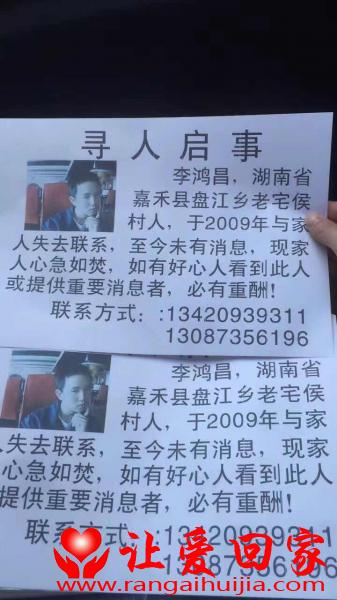 寻人启事
李鸿昌，湖南省
嘉禾县盘江乡老宅侯
村人，于2009年与家
人失去联系，至今未有消息，现家
人心急如焚，如有好心人看到此人
或提供重要消息者，必有重酬！
联系方式：:13420939311
13087356196
李鸿昌，湖南省
嘉禾县盘江乡老宅侯
村人，于2009年与家
人失去联系，至今未有消息，现家
心急如焚，如有好心人看到此人
提供重要消息者，必有重酬！
联系方式：:13420939311
13087356196
让爱回家
www.rangaihuijia.com